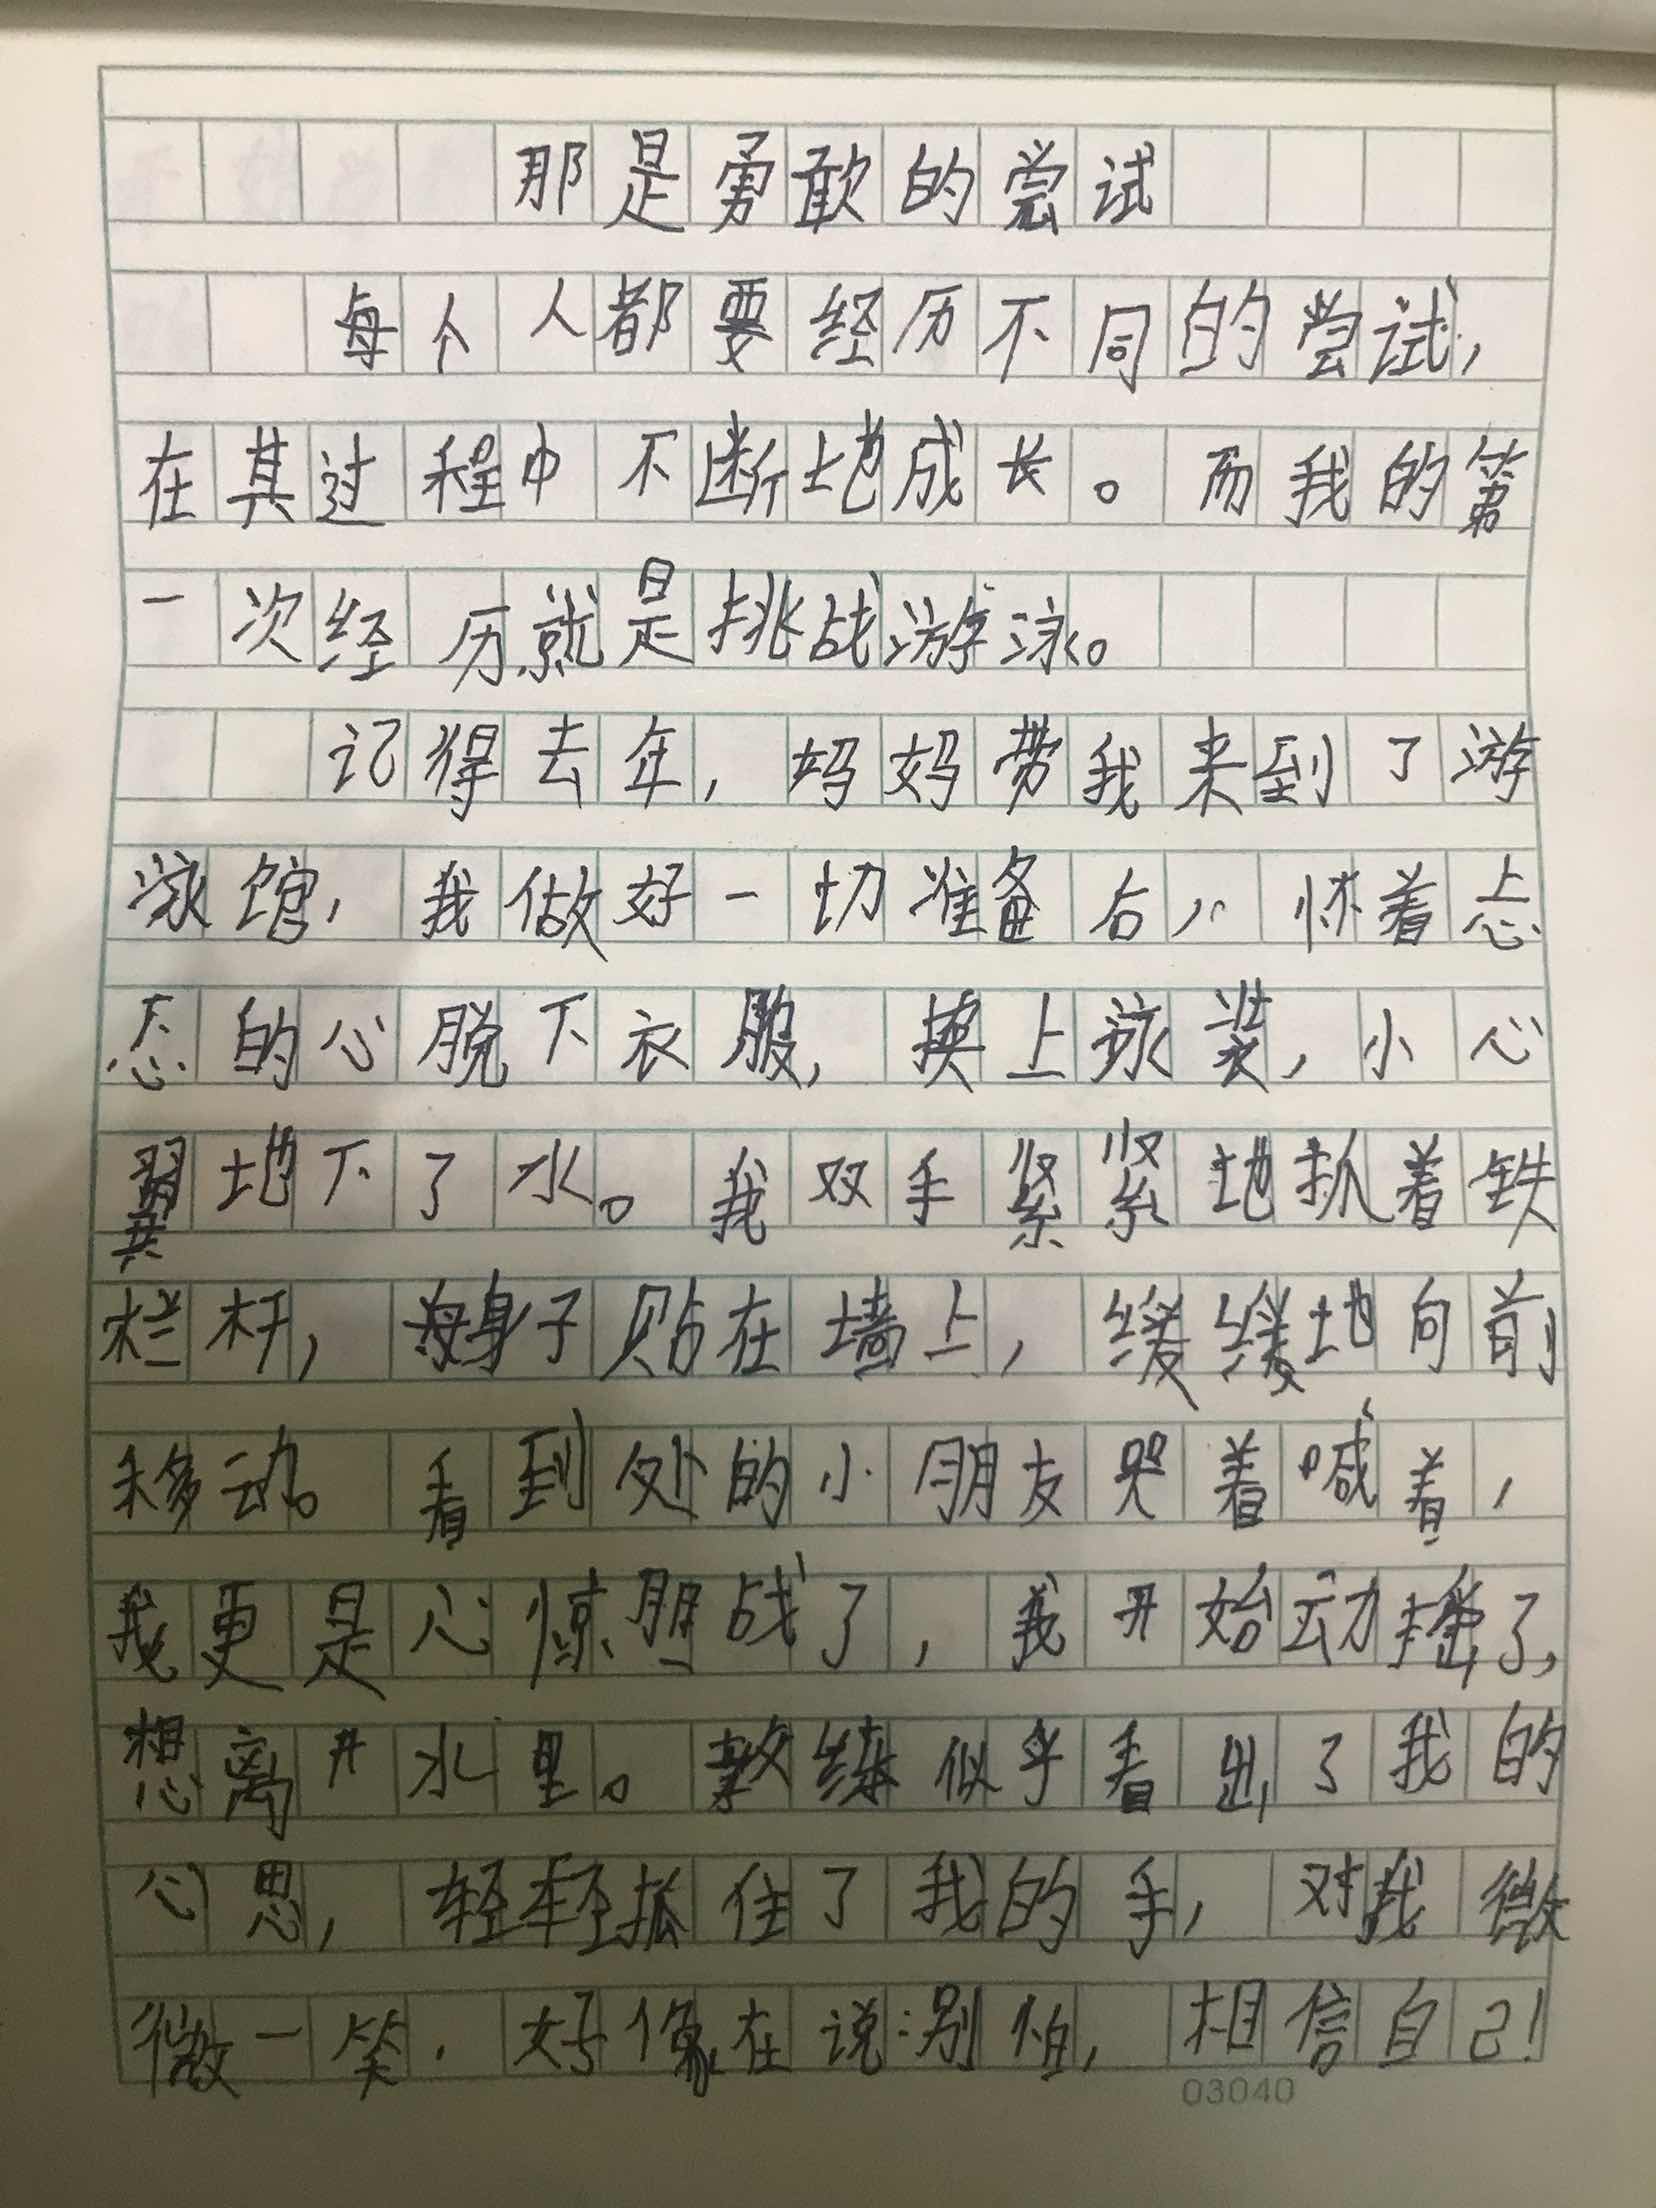 那是勇敢的尝试
每个人都要经历不同的尝试，
在其过程中不断地成长。而我的第
一次经历就是挑战游泳。
记得去年，妈妈带我来到了游
泳馆，我做好一切准备后，怀着忐
忑的心脱下衣服，换上泳装，小心
翼地下了水。我双手紧紧地抓着铁
栏杆，每身子贴在墙上，缓缓地向前
移动。看到处的小朋友哭着喊着，
我更是心惊胆战了，我开始动摇了，
想离开水里。教练似乎看出了我的
心思，轻轻抓住了我的手，对我微
微一笑．好像在说：别怕，相信自己！
03040